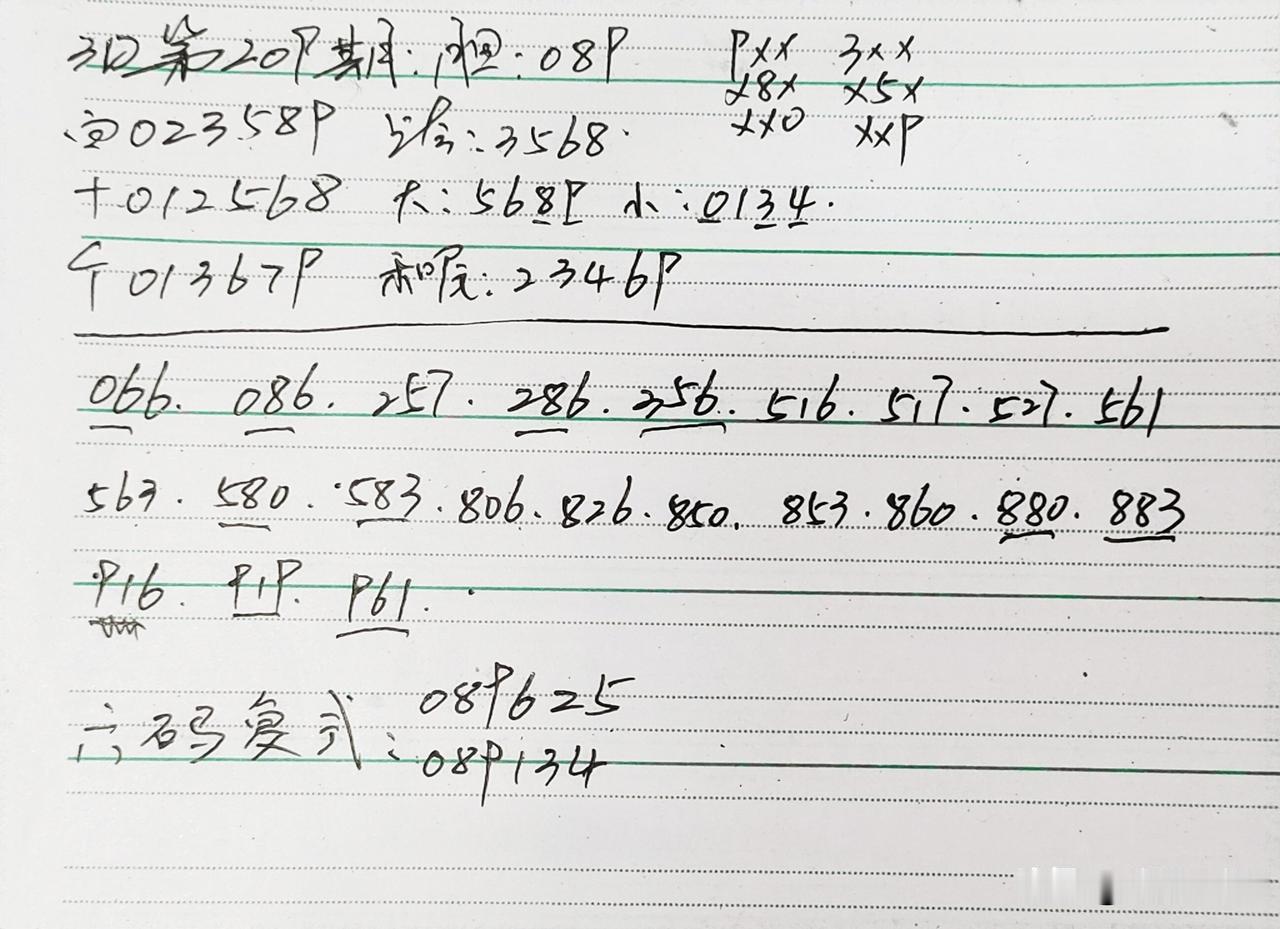 3D第209期:胆:089 9XX 3XX
X8X X5X
百023589 跨:3568. XX0 XX9
十012568 大:5689 小:0134.
个013679 和尾:23469
066. 086. 257. 286. 356. 516. 517. 527. 561
563. 580. 583. 806. 826. 850. 853. 860. 880. 883
916. 919. 961.
六码复式:089625
089134